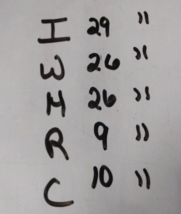 I 29 "
W 26 "
M 26 "
R 9 "
C 10 "